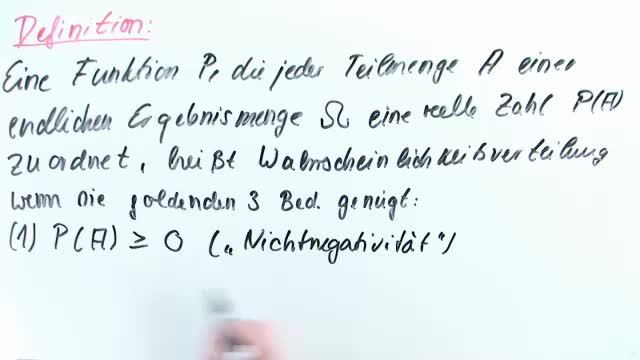 Definition:
Eine Funktion P, die jeder Teilmenge A einer
endlichen Ergebnismenge Ω eine reelle Zahl P(A)
zuordnet, heißt Wahrscheinlichkeitsverteilung
wenn sie folgenden 3 Bed. genügt:
(1) P(A) ≥ 0 („Nichtnegativität")